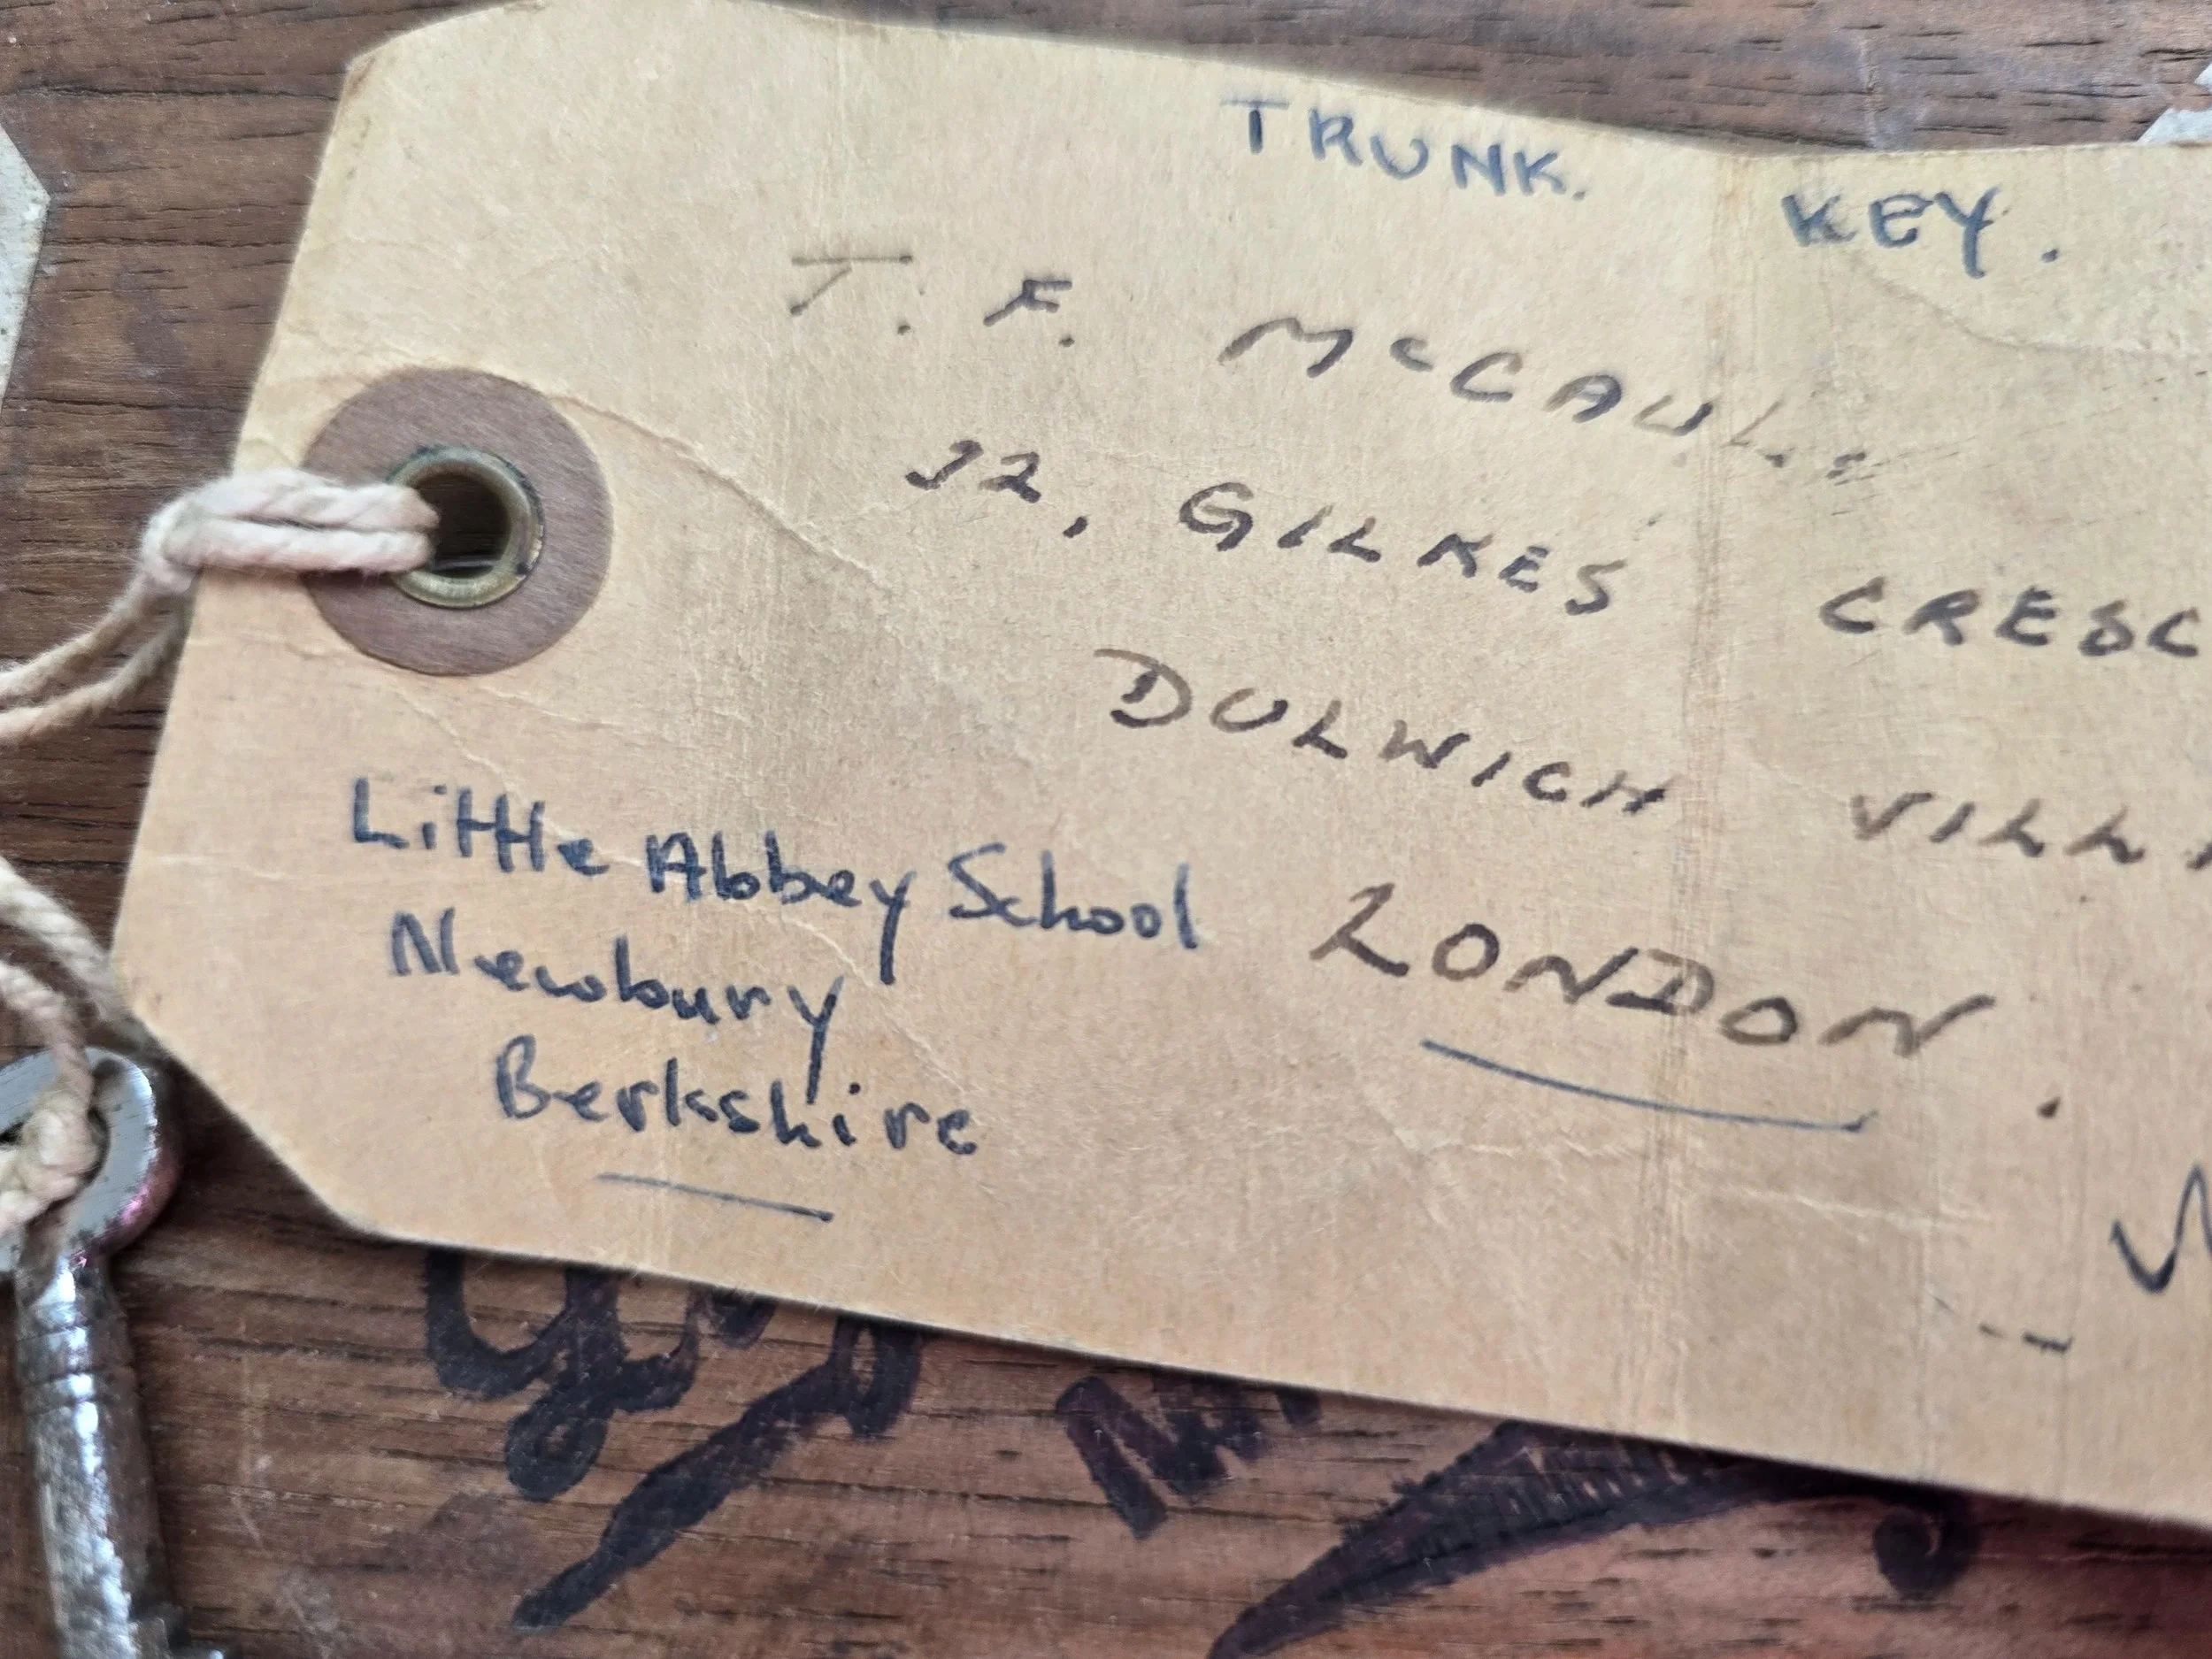 TRUNK. KEY.
T. F. McCAUL
32, GILKES CRESC
DULWICH VILL
LONDON.
Little Abbey School
Newbury
Berkshire